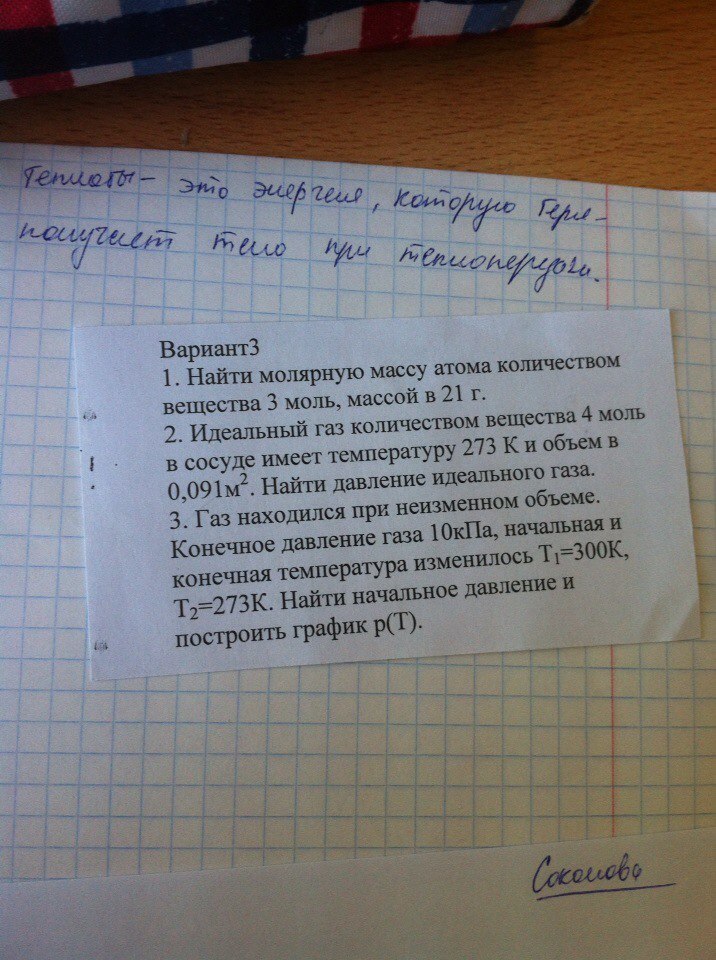 Теплоты - это энергия, которую теря-
получает тело при теплопередачи.
Вариант3
1. Найти молярную массу атома количеством
вещества 3 моль, массой в 21 г.
2. Идеальный газ количеством вещества 4 моль
в сосуде имеет температуру 273 К и объем в
0,091м². Найти давление идеального газа.
3. Газ находился при неизменном объеме.
Конечное давление газа 10кПа, начальная и
конечная температура изменилось T₁=300К,
T₂=273К. Найти начальное давление и
построить график р(Т).
Соколова